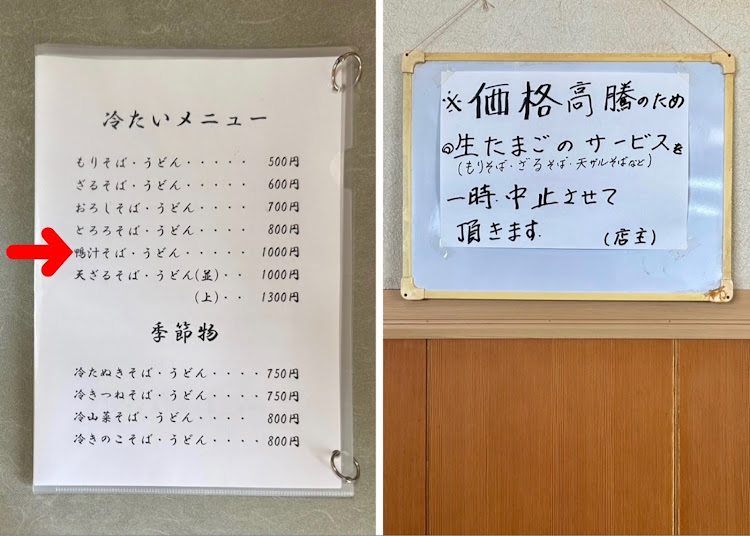 冷たいメニュー
もりそば・うどん・・・・・ 500円
ざるそば・うどん・・・・・ 600円
おろしそば・うどん・・・・ 700円
とろろそば・うどん・・・・ 800円
鴨汁そば・うどん・・・・・ 1000円
天ざるそば・うどん(並)・・ 1000円
(上)・・ 1300円
季節物
冷たぬきそば・うどん・・・・750円
冷きつねそば・うどん・・・・750円
冷山菜そば・うどん・・・・ 800円
冷きのこそば・うどん・・・・ 800円
※価格高騰のため
◎生たまごのサービスを
(もりそば・ざるそば・天ザルそばなど)
一時中止させて
頂きます.
(店主)